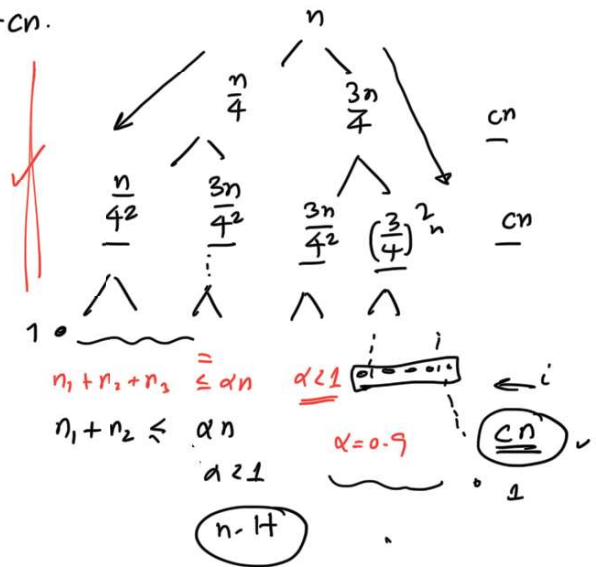 -cn.
n
n/4 3n/4 cn
n/4² 3n/4² 3n/4² (3/4)²n cn
1
n₁ + n₂ + n₃ ≤ αn α<1 i
n₁ + n₂ ≤ αn α=0.9 cn
α<1 1
n-H